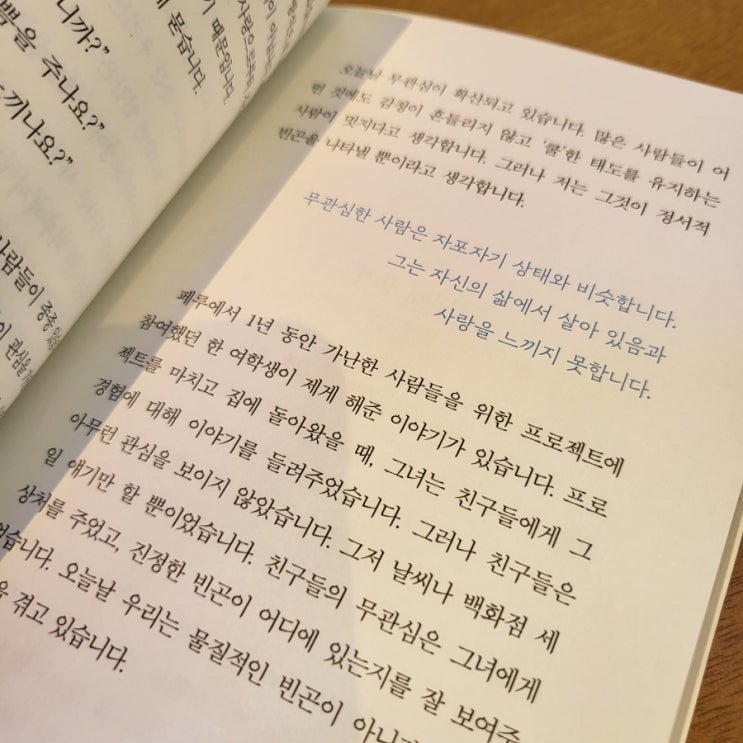 니까?"
쁨을 주나요?"
느끼나요?"
기 때문입니다.
에 묻습니다.
사람들이 종종
오늘날 무관심이 확산되고 있습니다. 많은 사람들이 어
떤 것에도 감정이 흔들리지 않고 '쿨'한 태도를 유지하는
사람이 멋지다고 생각합니다. 그러나 저는 그것이 정서적
빈곤을 나타낼 뿐이라고 생각합니다.
무관심한 사람은 자포자기 상태와 비슷합니다.
그는 자신의 삶에서 살아 있음과
사랑을 느끼지 못합니다.
페루에서 1년 동안 가난한 사람들을 위한 프로젝트에
참여했던 한 여학생이 제게 해준 이야기가 있습니다. 프로
젝트를 마치고 집에 돌아왔을 때, 그녀는 친구들에게 그
경험에 대해 이야기를 들려주었습니다. 그러나 친구들은
아무런 관심을 보이지 않았습니다. 그저 날씨나 백화점 세
일 얘기만 할 뿐이었습니다. 친구들의 무관심은 그녀에게
상처를 주었고, 진정한 빈곤이 어디에 있는지를 잘 보여주
었습니다. 오늘날 우리는 물질적인 빈곤이 아니
을 겪고 있습니다.